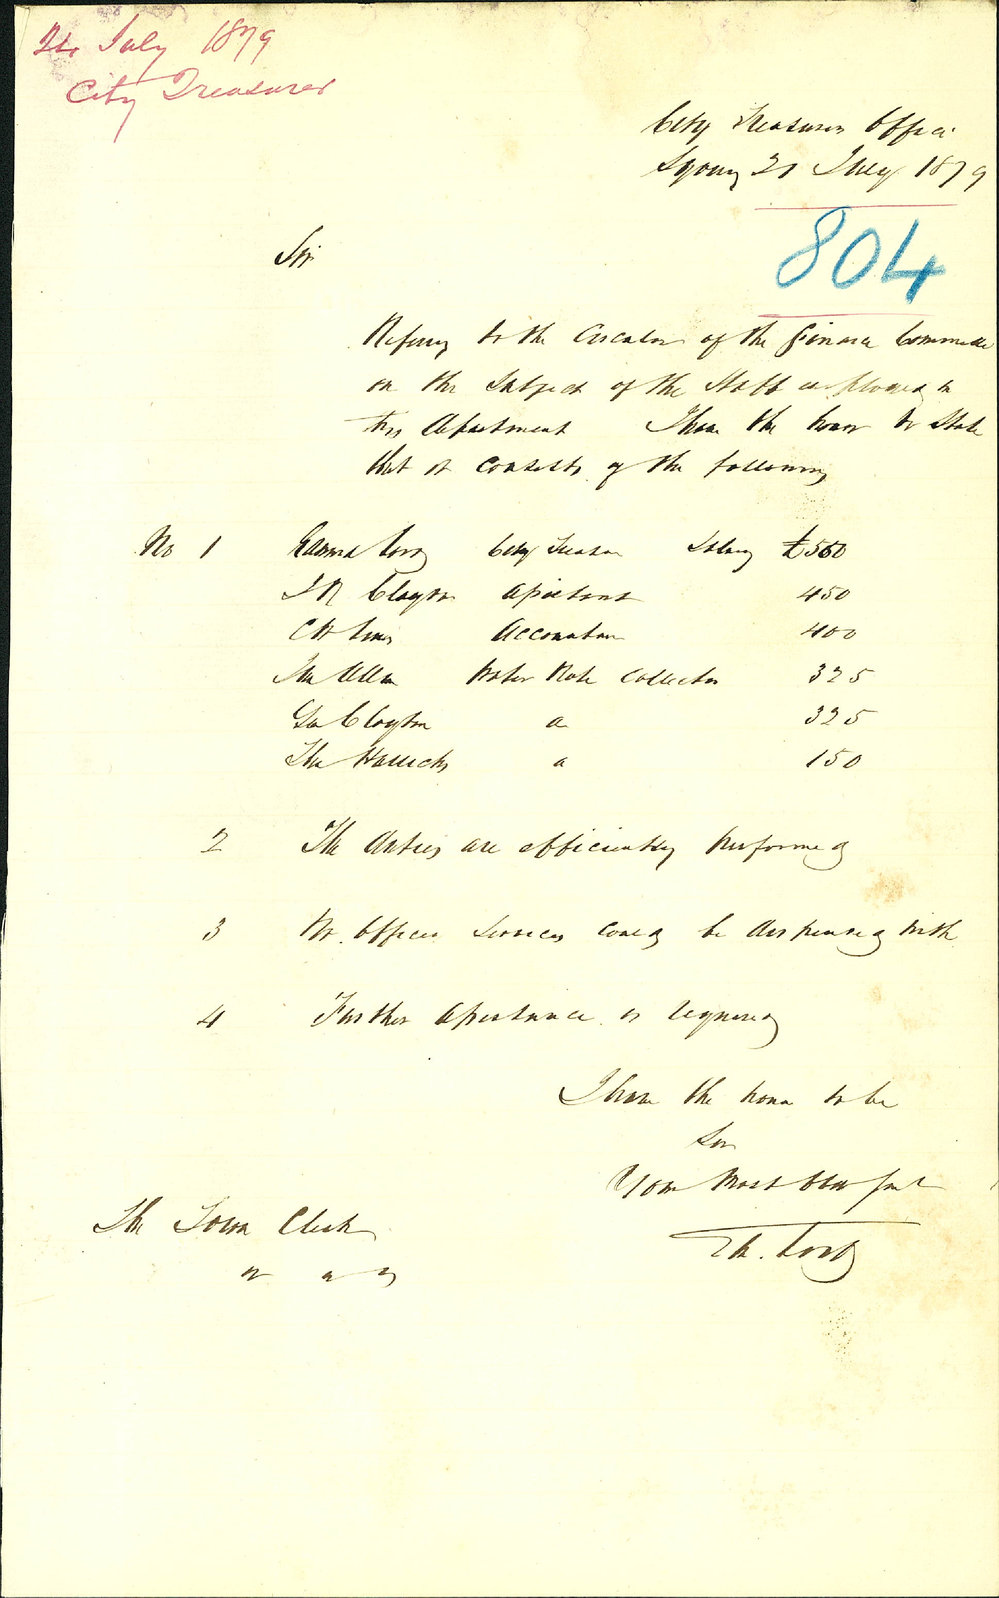 24 July 1879
City Treasurer
City Treasurers Office
Sydney 21 July 1879
804
Sir
Referring to the Circular of the Finance Committee
on the Subject of the Staff employed in
this Department I have the honor to State
that it consists of the following
No 1 City Treasurer Salary £500
J R Clayton Assistant 450
Accountant 400
Jno Allen Water Rate Collector 325
Geo Clayton 325
Tho 150
2 The duties are efficiently performed
3 No Officers Services could be dispensed with
4 Further Assistance is required
I have the honor to be
Sir
Your Most Obt Servt
The Town Clerk